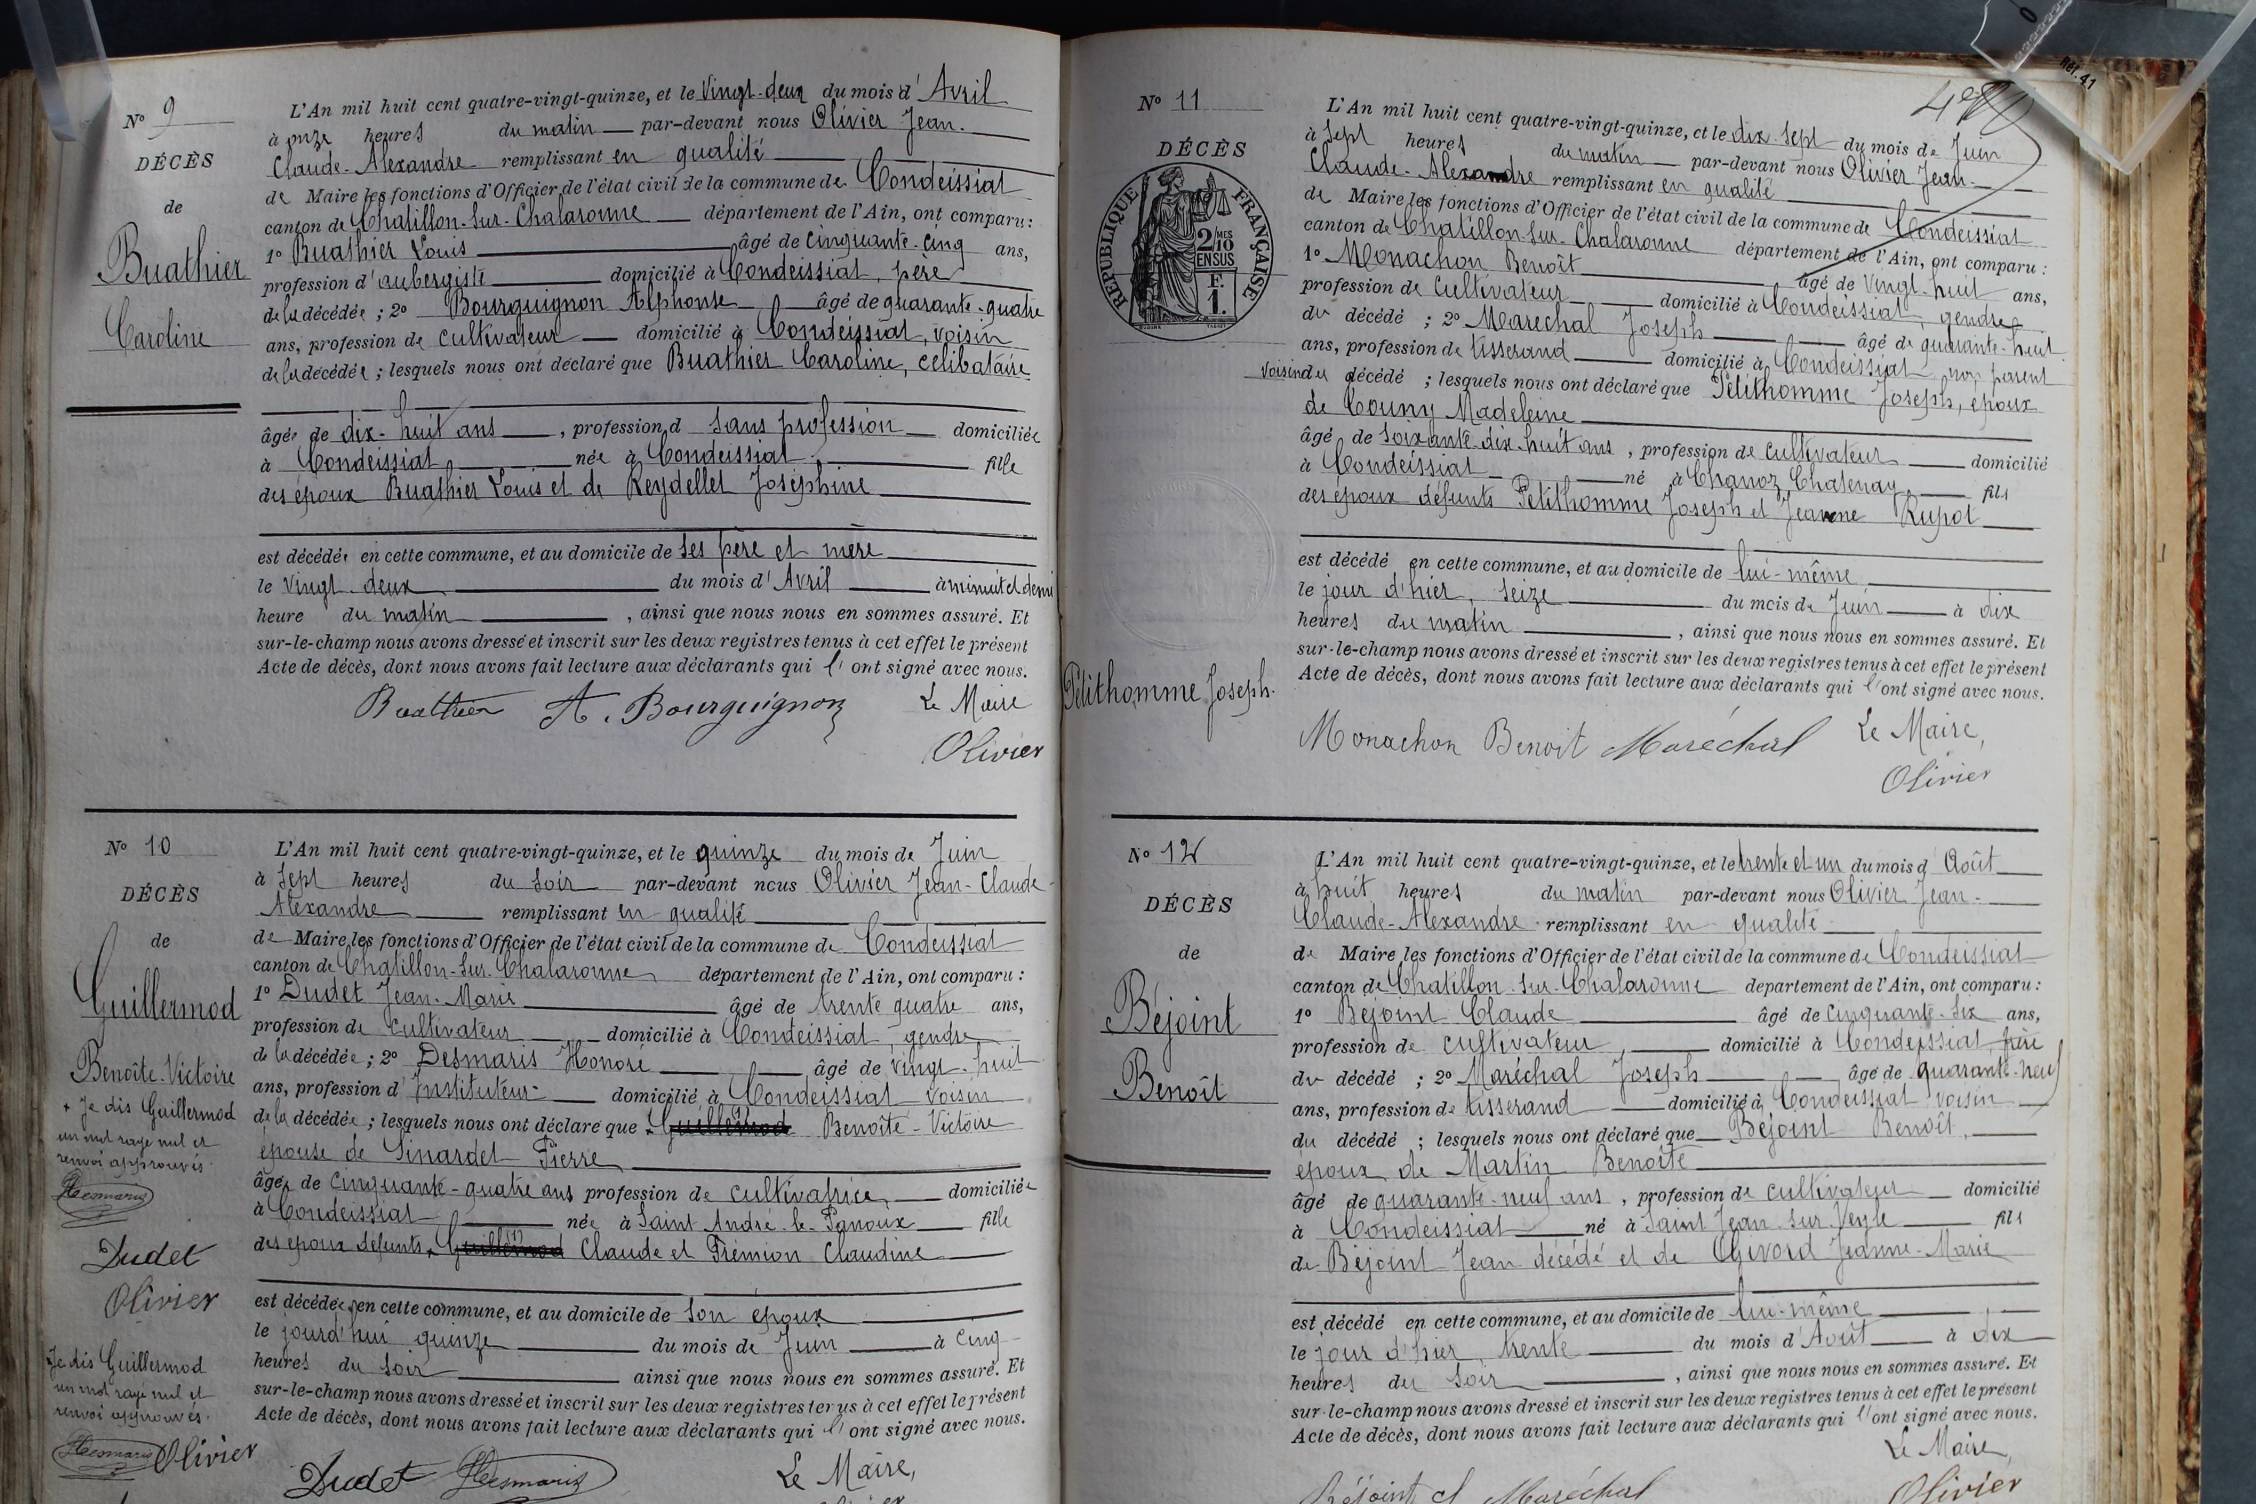 N° 9
DÉCÈS
de
Buathier
Caroline
L'An mil huit cent quatre-vingt-quinze, et le vingt-deux du mois d'Avril
à onze heures du matin par-devant nous Olivier Jean-
Claude-Alexandre remplissant en qualité
de Maire les fonctions d'Officier de l'état civil de la commune de Condeissiat
canton de Chatillon-sur-Chalaronne département de l'Ain, ont comparu:
1° Buathier Louis âgé de cinquante-cinq ans,
profession d'aubergiste domicilié à Condeissiat, père
de la décédée ; 2° Bourguignon Alphonse âgé de quarante-quatre
ans, profession de cultivateur domicilié à Condeissiat, voisin
de la décédée ; lesquels nous ont déclaré que Buathier Caroline, célibataire
âgée de dix-huit ans, profession d sans profession domiciliée
à Condeissiat née à Condeissiat fille
des époux Buathier Louis et de Reydellet Joséphine
est décédée en cette commune, et au domicile de ses père et mère
le vingt deux du mois d'Avril à minuit et demi
heure du matin, ainsi que nous nous en sommes assuré. Et
sur-le-champ nous avons dressé et inscrit sur les deux registres tenus à cet effet le présent
Acte de décès, dont nous avons fait lecture aux déclarants qui l'ont signé avec nous.
Buathier A. Bourguignon Le Maire
Olivier
N° 10
DÉCÈS
de
Guillermod
Benoîte-Victoire
+ Je dis Guillermod
un mot rayé nul et
renvoi approuvés.
Desmaris
Dudet
Olivier
Je dis Guillermod
un mot rayé nul et
renvoi approuvés.
Desmaris Olivier
L'An mil huit cent quatre-vingt-quinze, et le quinze du mois de Juin
à sept heures du soir par-devant nous Olivier Jean-Claude-
Alexandre remplissant en qualité
de Maire les fonctions d'Officier de l'état civil de la commune de Condeissiat
canton de Chatillon-sur-Chalaronne département de l'Ain, ont comparu :
1° Dudet Jean-Marie âgé de trente quatre ans,
profession de cultivateur domicilié à Condeissiat, gendre
de la décédée ; 2° Desmaris Honoré âgé de vingt-huit
ans, profession d'Instituteur domicilié à Condeissiat voisin
de la décédée ; lesquels nous ont déclaré que + Guillermod Benoîte-Victoire
épouse de Sinardet Pierre
âgée de cinquante-quatre ans profession de cultivatrice domiciliée
à Condeissiat née à Saint André-le-Panoux fille
des époux défunts + Guillermod Claude et Frémion Claudine
est décédée en cette commune, et au domicile de son époux
le jourd'hui quinze du mois de Juin à cinq
heures du soir ainsi que nous nous en sommes assuré. Et
sur-le-champ nous avons dressé et inscrit sur les deux registres tenus à cet effet le présent
Acte de décès, dont nous avons fait lecture aux déclarants qui l'ont signé avec nous.
Dudet Desmaris Le Maire,
Ref. 41
N° 11
DÉCÈS
RÉPUBLIQUE FRANÇAISE
2/10 MES
EN SUS
F.
1.
Pétithomme Joseph.
L'An mil huit cent quatre-vingt-quinze, et le dix-sept du mois de Juin
à sept heures du matin par-devant nous Olivier Jean-
Claude-Alexandre remplissant en qualité
de Maire les fonctions d'Officier de l'état civil de la commune de Condeissiat
canton de Chatillon-sur-Chalaronne département de l'Ain, ont comparu :
1° Monachon Benoît âgé de vingt-huit ans,
profession de cultivateur domicilié à Condeissiat, gendre
du décédé ; 2° Maréchal Joseph âgé de quarante-huit
ans, profession de tisserand domicilié à Condeissiat non parent
voisin du décédé ; lesquels nous ont déclaré que Pétithomme Joseph, époux
de Couny Madeleine
âgé de soixante-dix-huit ans, profession de cultivateur domicilié
à Condeissiat né à Chanoz Chatenay fils
des époux défunts Petithomme Joseph et Jeanne Rupot
est décédé en cette commune, et au domicile de lui-même
le jour d'hier, seize du mois de Juin à dix
heures du matin, ainsi que nous nous en sommes assuré. Et
sur-le-champ nous avons dressé et inscrit sur les deux registres tenus à cet effet le présent
Acte de décès, dont nous avons fait lecture aux déclarants qui l'ont signé avec nous.
Monachon Benoit Maréchal Le Maire,
Olivier
N° 12
DÉCÈS
de
Béjoint
Benoît
L'An mil huit cent quatre-vingt-quinze, et le trente et un du mois d'Août
à huit heures du matin par-devant nous Olivier Jean-
Claude-Alexandre remplissant en qualité
de Maire les fonctions d'Officier de l'état civil de la commune de Condeissiat
canton de Chatillon-sur-Chalaronne département de l'Ain, ont comparu :
1° Béjoint Claude âgé de cinquante-six ans,
profession de cultivateur, domicilié à Condeissiat frère
du décédé ; 2° Maréchal Joseph âgé de quarante-neuf
ans, profession de tisserand domicilié à Condeissiat voisin
du décédé ; lesquels nous ont déclaré que Béjoint Benoît,
époux de Martin Benoîte
âgé de quarante-neuf ans, profession de cultivateur domicilié
à Condeissiat né à Saint Jean-sur-Veyle fils
de Béjoint Jean décédé et de Chivord Jeanne-Marie
est décédé en cette commune, et au domicile de lui-même
le jour d'hier, trente du mois d'Août à dix
heures du soir, ainsi que nous nous en sommes assuré. Et
sur-le-champ nous avons dressé et inscrit sur les deux registres tenus à cet effet le présent
Acte de décès, dont nous avons fait lecture aux déclarants qui l'ont signé avec nous.
Le Maire,
Béjoint cl Maréchal Olivier